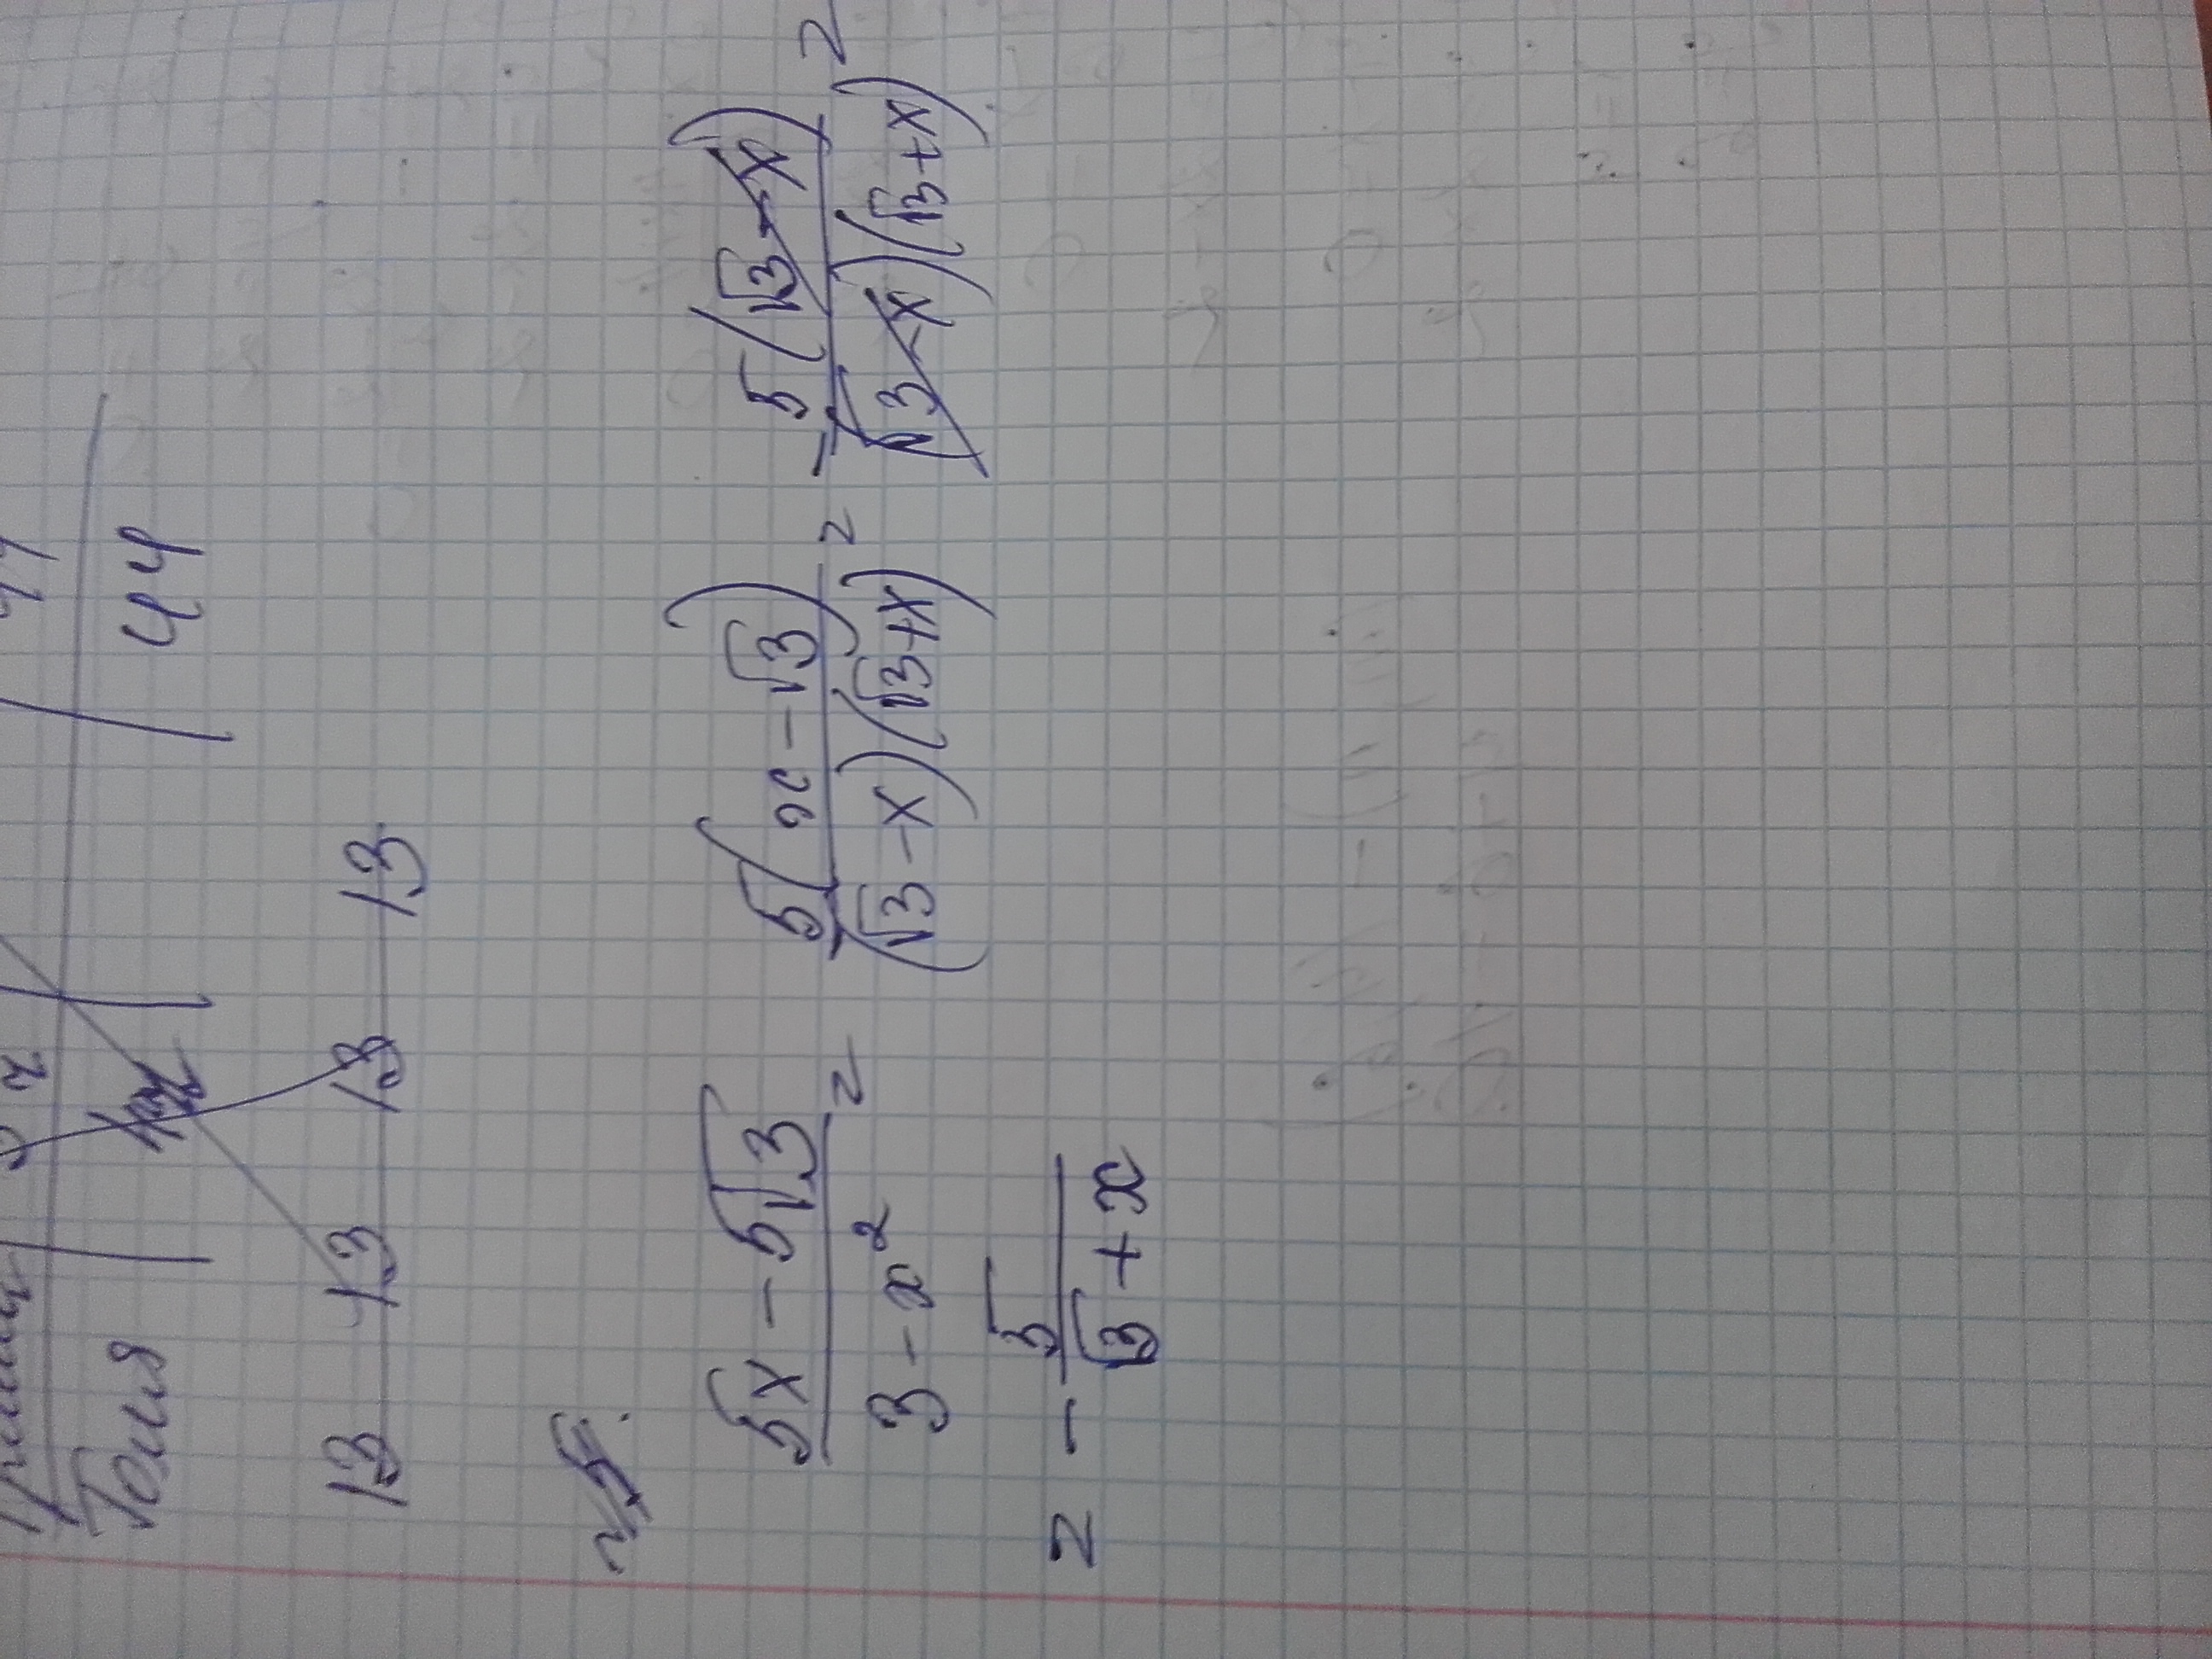 Толя | | 44
13 13 13 13
№5.
(5x - 5√3)/(3 - x²) = (5(x - √3))/((√3 - x)(√3 + x)) = -(5(√3 - x))/((√3 - x)(√3 + x)) =
= -5/(√3 + x)